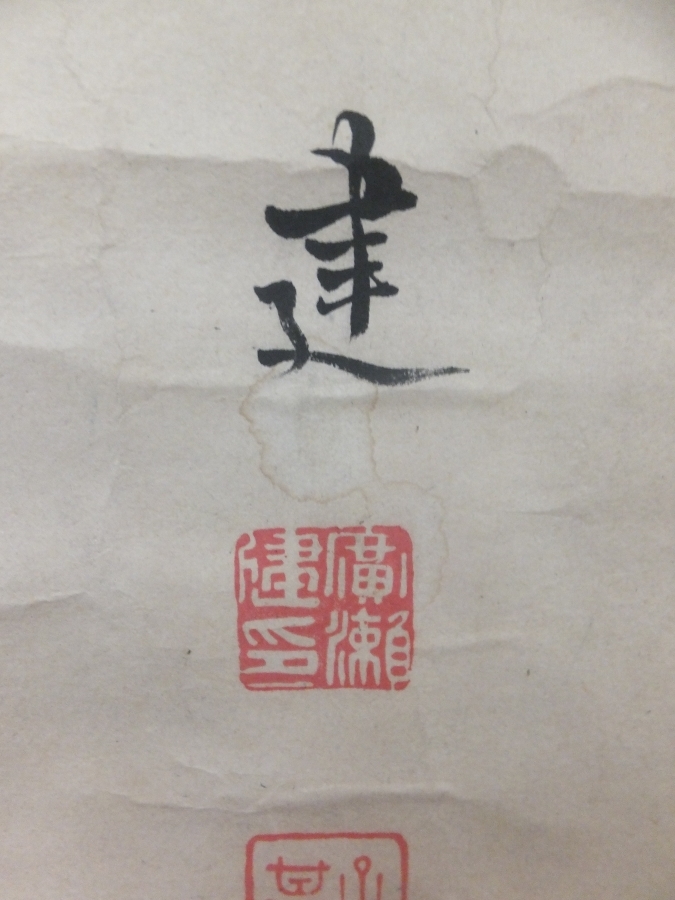 建
廣瀨
建印